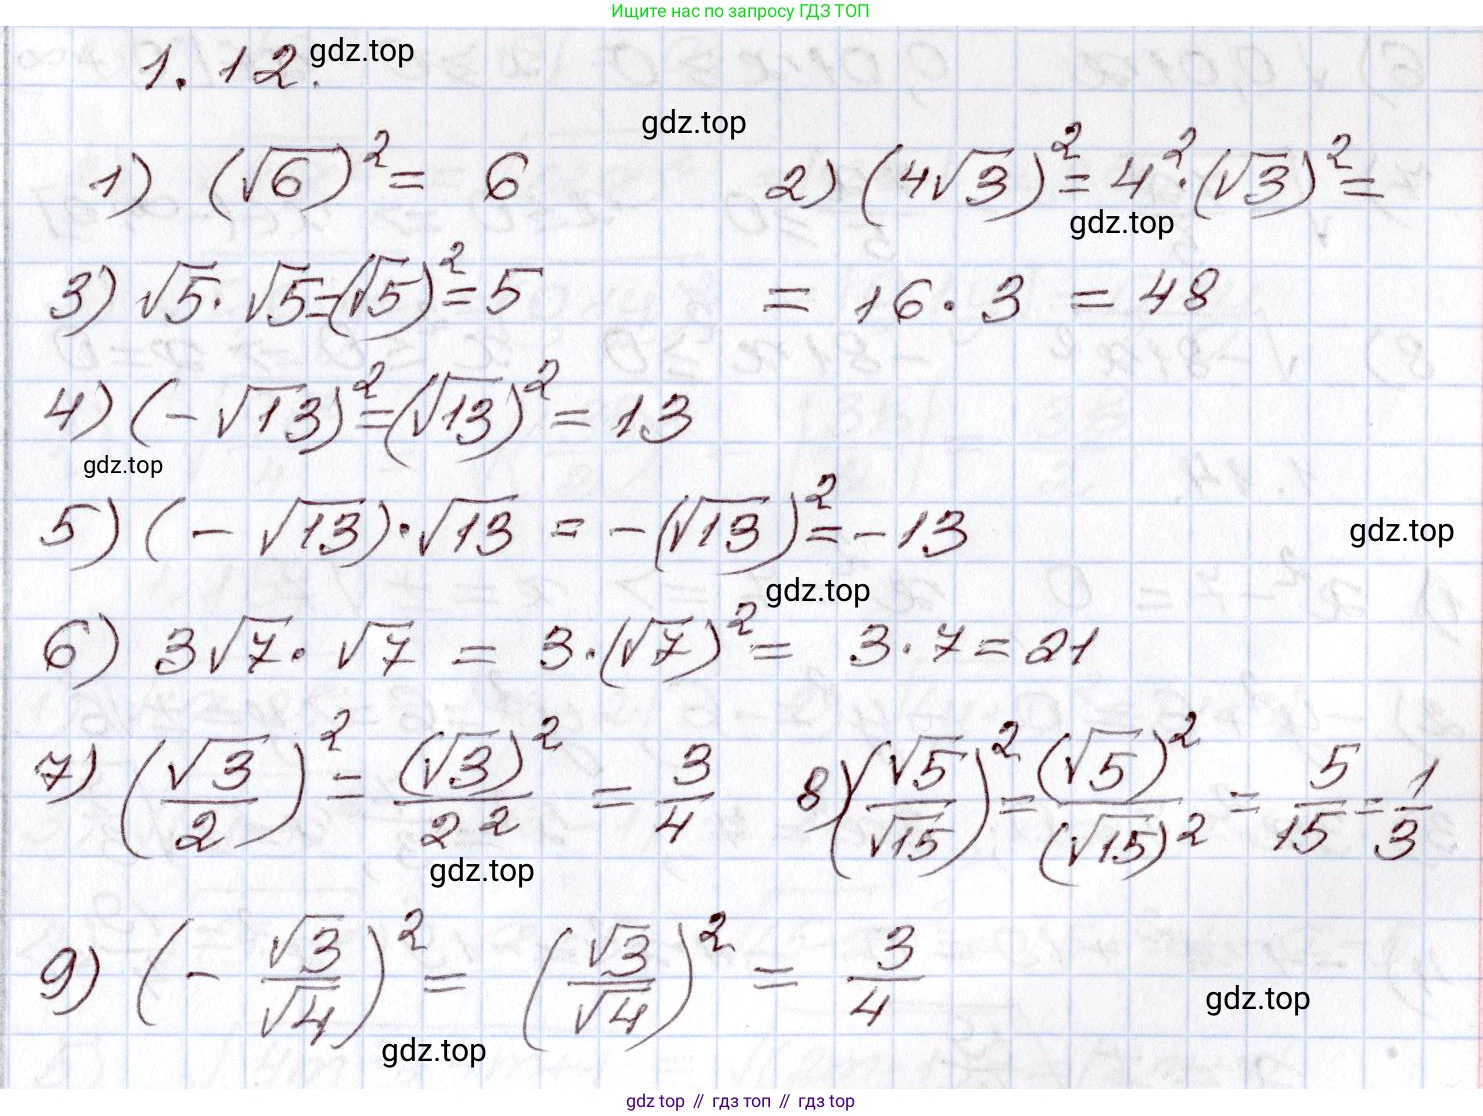 Ищите нас по запросу ГДЗ ТОП
1.12. gdz.top
gdz.top
1) (√6)² = 6
2) (4√3)² = 4² · (√3)² =
gdz.top
3) √5 · √5 = (√5)² = 5
= 16 · 3 = 48
4) (-√13)² = (√13)² = 13
gdz.top
5) (-√13) · √13 = -(√13)² = -13
gdz.top
gdz.top
6) 3√7 · √7 = 3 · (√7)² = 3 · 7 = 21
7) (√3/2)² = (√3)²/2² = 3/4
8) (√5/√15)² = (√5)²/(√15)² = 5/15 = 1/3
gdz.top
9) (-√3/√4)² = (√3/√4)² = 3/4
gdz.top
gdz.top
gdz top // гдз топ // гдз top